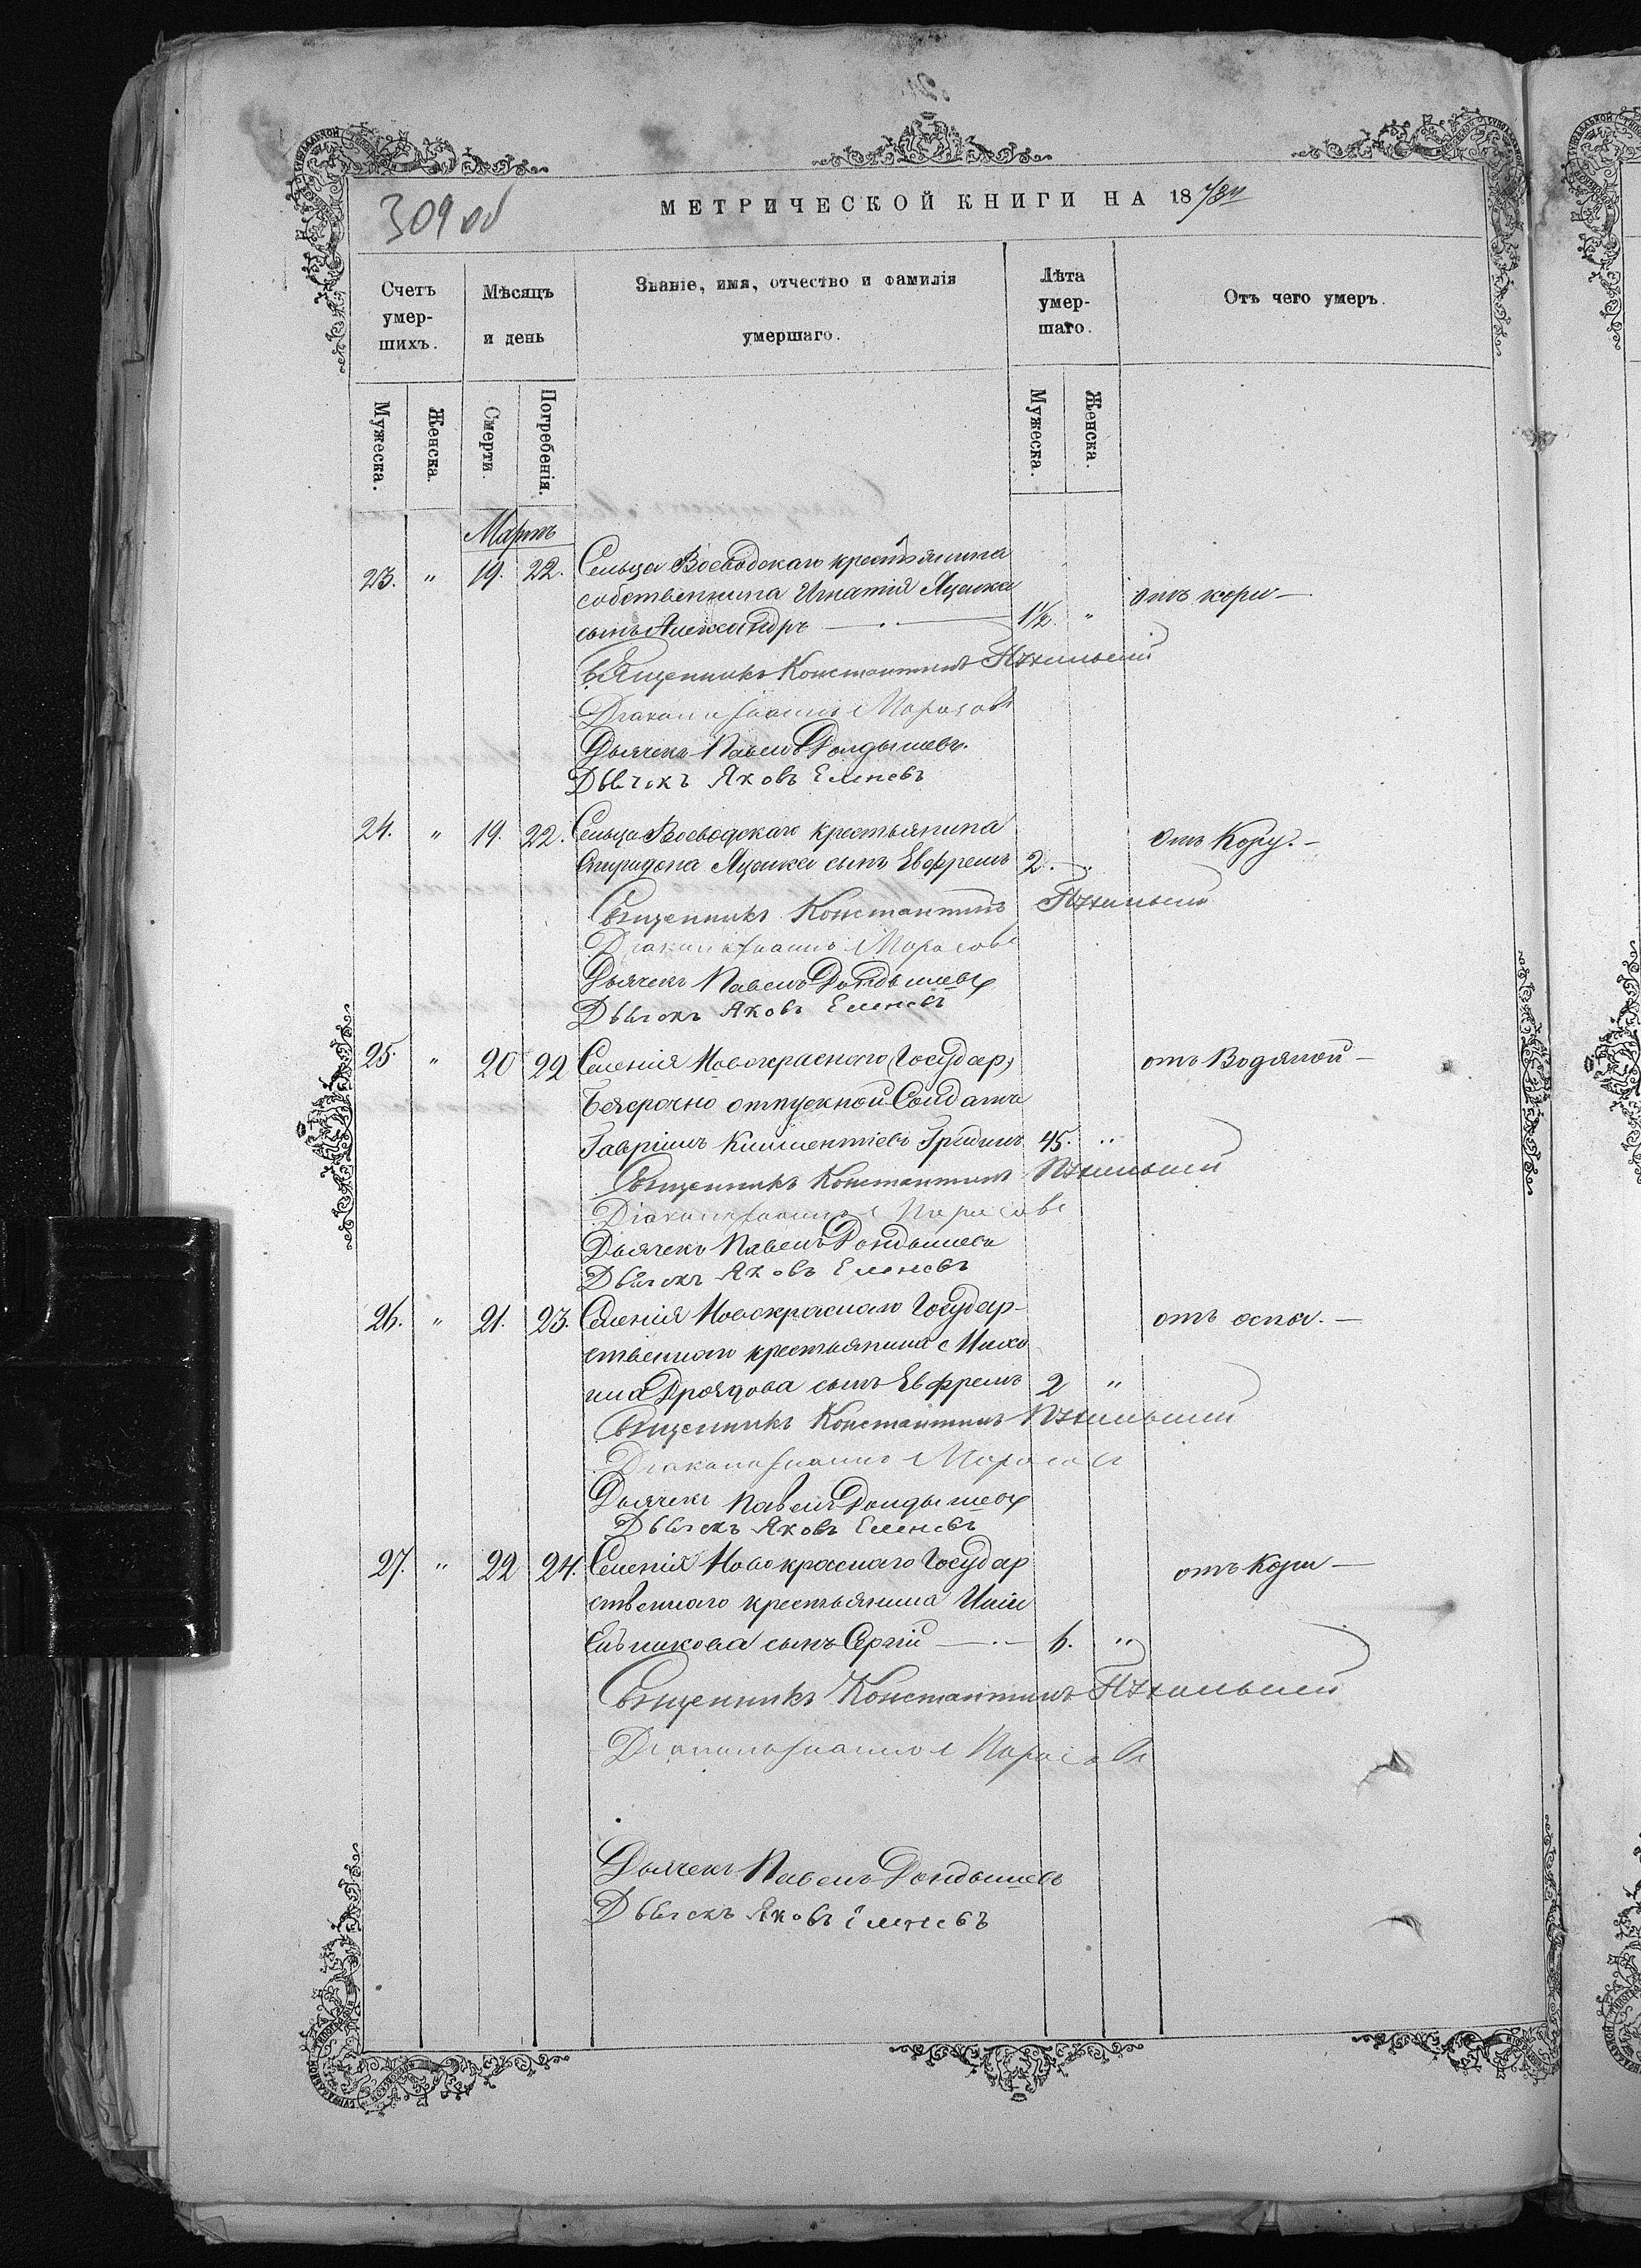 309 об
МЕТРИЧЕСКОЙ КНИГИ НА 18
Счетъ умер-шихъ.
Мѣсяцъ и день
Званіе, имя, отчество и фамилія умершаго.
Лѣта умер-шаго.
Отъ чего умеръ.
Мужеска.
Женска.
Смерти.
Погребенія.
Мужеска.
Женска.
Мартъ
23. " 19. 22. Сельца Воеводскаго крестьянина
собственника Игнатія Яценка отъ кори —
сынъ Александръ — 1½. "
Священникъ Константинъ
Діаконъ Іоаннъ Морозовъ
Дьячекъ Павелъ Долдышевъ.
Дьячекъ Яковъ Еленевъ
24. " 19. 22. Сельца Воеводскаго крестьянина отъ Кору. —
Спиридона Яценка сынъ Евфремъ 2. "
Священникъ Константинъ
Діаконъ Іоаннъ Морозовъ
Дьячекъ Павелъ Долдышевъ
Дьячекъ Яковъ Еленевъ
25. " 20 22 Селенія Новокраснаго Государ, отъ Водяной —
Безсрочно отпускной Солдатъ
Гавріилъ Климентіевъ 45. "
Священникъ Константинъ
Діаконъ Іоаннъ Морозовъ
Дьячекъ Павелъ Долдышевъ
Дьячекъ Яковъ Еленевъ
26. " 21. 23. Селенія Новокраснаго Государ- отъ оспы. —
ственнаго крестьянина
Дроздова сынъ Евфремъ 2 "
Священникъ Константинъ
Діаконъ Іоаннъ Морозовъ
Дьячекъ Павелъ Долдышевъ
Дьячекъ Яковъ Еленевъ
27. " 22 24. Селенія Новокраснаго Государ отъ Кори —
ственнаго крестьянина Иліи
сынъ Сергій — 6. "
Священникъ Константинъ
Діаконъ Іоаннъ Морозовъ
Дьячекъ Павелъ Долдышевъ
Дьячекъ Яковъ Еленевъ